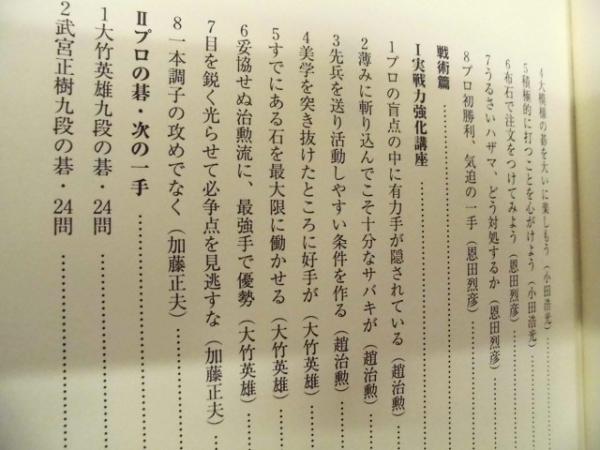 4大模様の碁を大いに楽しもう(小田浩光)
5積極的に打つことを心がけよう(小田浩光)
6布石で注文をつけてみよう(恩田烈彦)
7うるさいハザマ、どう対処するか(恩田烈彦)
8プロ初勝利、気迫の一手(恩田烈彦)
戦術篇
Ⅰ実戦力強化講座
1プロの盲点の中に有力手が隠されている(趙治勲)
2薄みに斬り込んでこそ十分なサバキが(趙治勲)
3先兵を送り活動しやすい条件を作る(趙治勲)
4美学を突き抜けたところに好手が(大竹英雄)
5すでにある石を最大限に働かせる(大竹英雄)
6妥協せぬ治勲流に、最強手で優勢(大竹英雄)
7目を鋭く光らせて必争点を見逃すな(加藤正夫)
8一本調子の攻めでなく(加藤正夫)
Ⅱプロの碁・次の一手
1大竹英雄九段の碁・24問
2武宮正樹九段の碁・24問